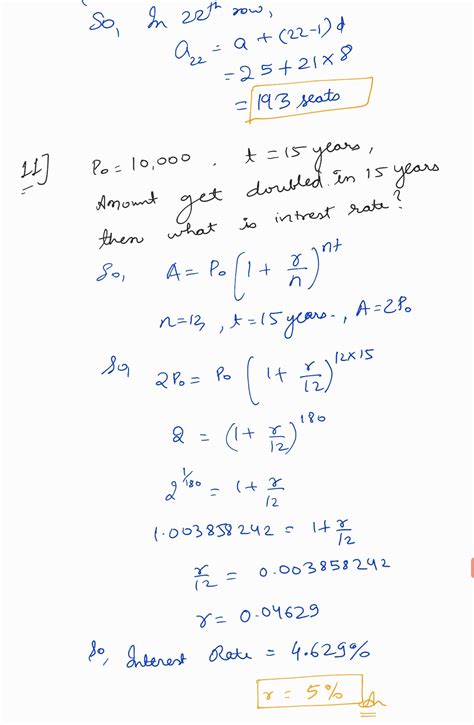 So, In 22th row,
a22 = a + (22-1)d
= 25 + 21×8
= 193 seats
11] Po = 10,000 . t = 15 years,
Amount get doubled in 15 years
then what is intrest rate?
So, A = Po(1 + r/n)^nt
n=12, t=15 years., A=2Po
So, 2Po = Po (1 + r/12)^12×15
2 = (1 + r/12)^180
2^1/180 = 1 + r/12
1.003858242 = 1 + r/12
r/12 = 0.003858242
r = 0.04629
So, Interest Rate = 4.629%
r = 5% Ans